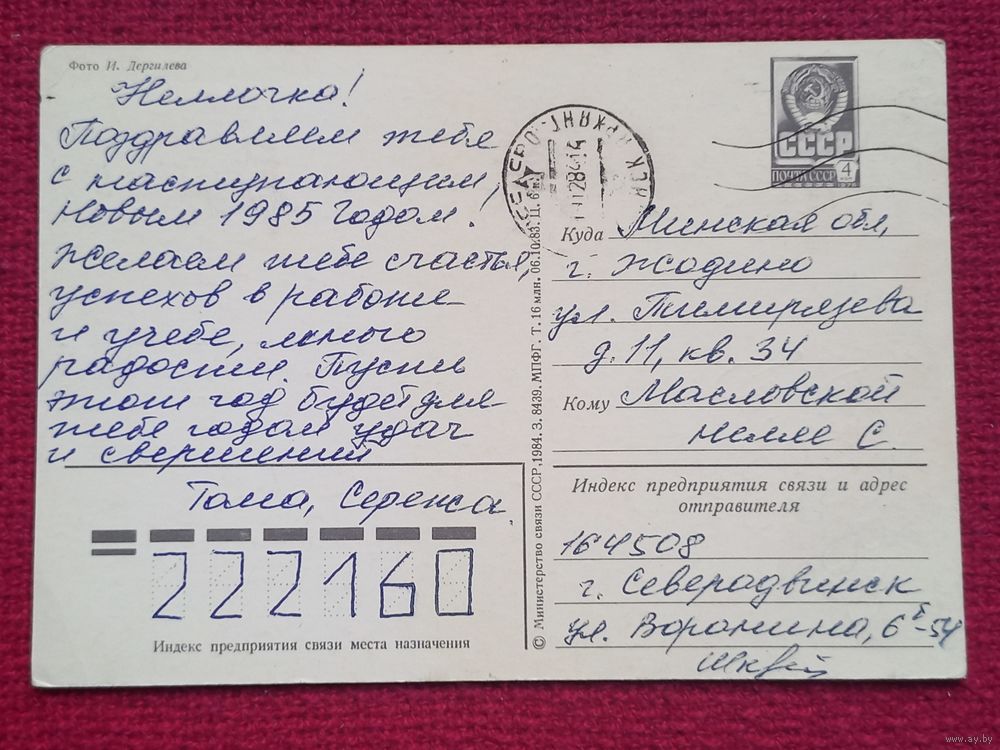 Фото И. Дергилева
Неллочка!
Поздравляем тебя
с наступающим,
Новым 1985 годом!
Желаем тебе счастья,
успехов в работе
и учебе, много
радости. Пусть
этот год будет для
тебя годом удач
и свершений
Тома, Сережа.
222160
Индекс предприятия связи места назначения
© Министерство связи СССР, 1984. З. 8439. МПФГ. Т. 16 млн. 06.10.83. Ц. 6 к.
СССР
ПОЧТА СССР 4
Куда Минская обл,
г. Жодино
ул. Тимирязева
д. 11, кв. 34
Кому Масловской
Нелле С.
Индекс предприятия связи и адрес
отправителя
164508
г. Северодвинск
ул. Воронина, 6
-54
www.ay.by